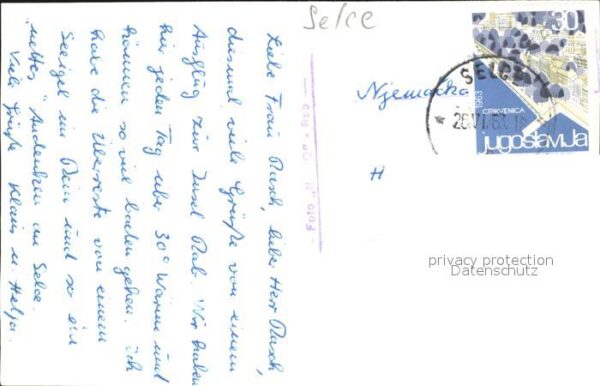 Selce
30
SELCE
1963
CRIKVENICA
jugoslavija
Njemačka
H
privacy protection
Datenschutz
Liebe Frau Rasch, lieber Herr Rasch,
diesmal viele Grüße von einem
Ausflug zur Insel Rab. Wir haben
hier jeden Tag über 30° Wärme und
können so viel baden gehen. Ich
habe die Überreste von einem
Seeigel im Bein und so ein
nettes "Andenken an Selce.
Viele Grüße Klaus u. Helga.